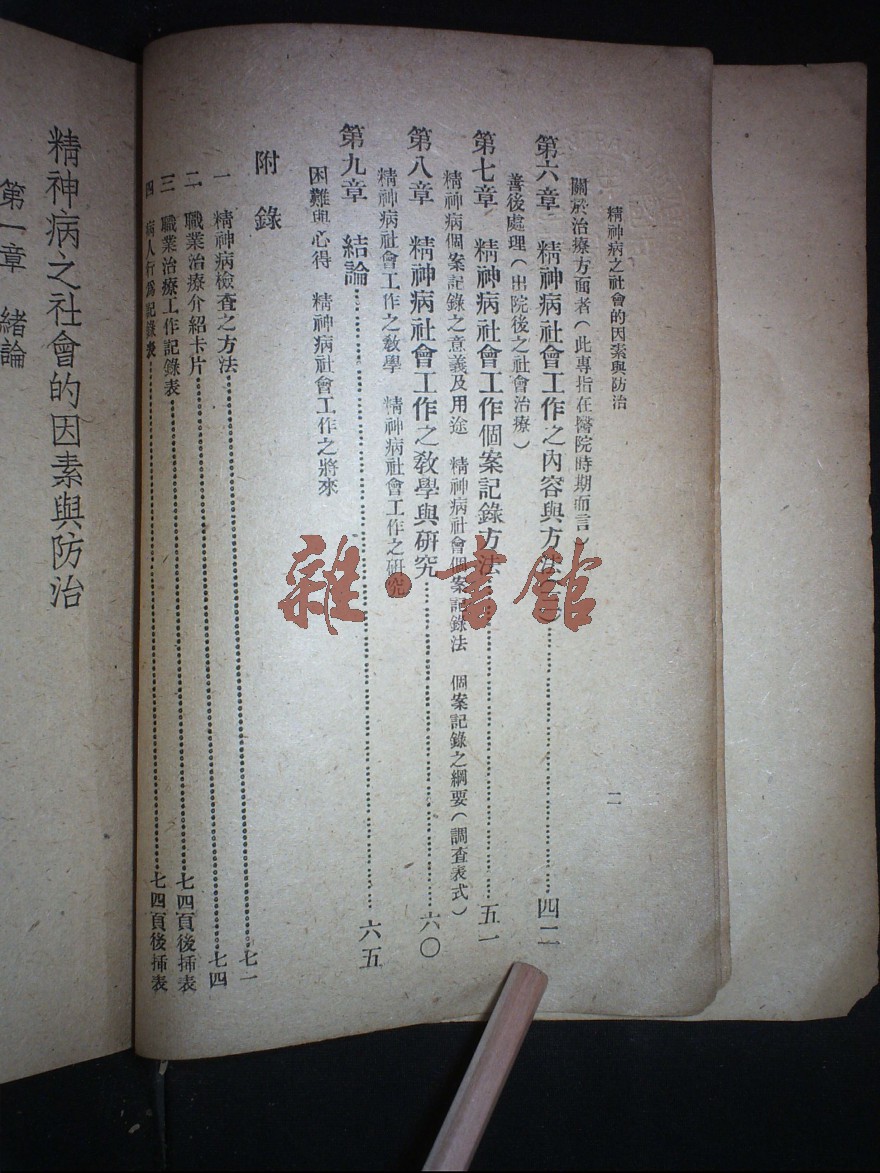 精神病之社會的因素與防治
二
關於治療方面者(此專指在醫院時期而言)
第六章 精神病社會工作之內容與方法(二)……四二
善後處理(出院後之社會治療)
第七章 精神病社會工作個案記錄方法……五一
精神病個案記錄之意義及用途 精神病社會個案記錄法 個案記錄之綱要(調查表式)
第八章 精神病社會工作之教學與研究……六〇
精神病社會工作之教學 精神病社會工作之研究
第九章 結論……六五
困難與心得 精神病社會工作之將來
附錄
一 精神病檢查之方法……七一
二 職業治療介紹卡片……七四
三 職業治療工作記錄表……七四頁後揷表
四 病人行爲記錄表……七四頁後揷表
精神病之社會的因素與防治
第一章 緒論
雜·書館